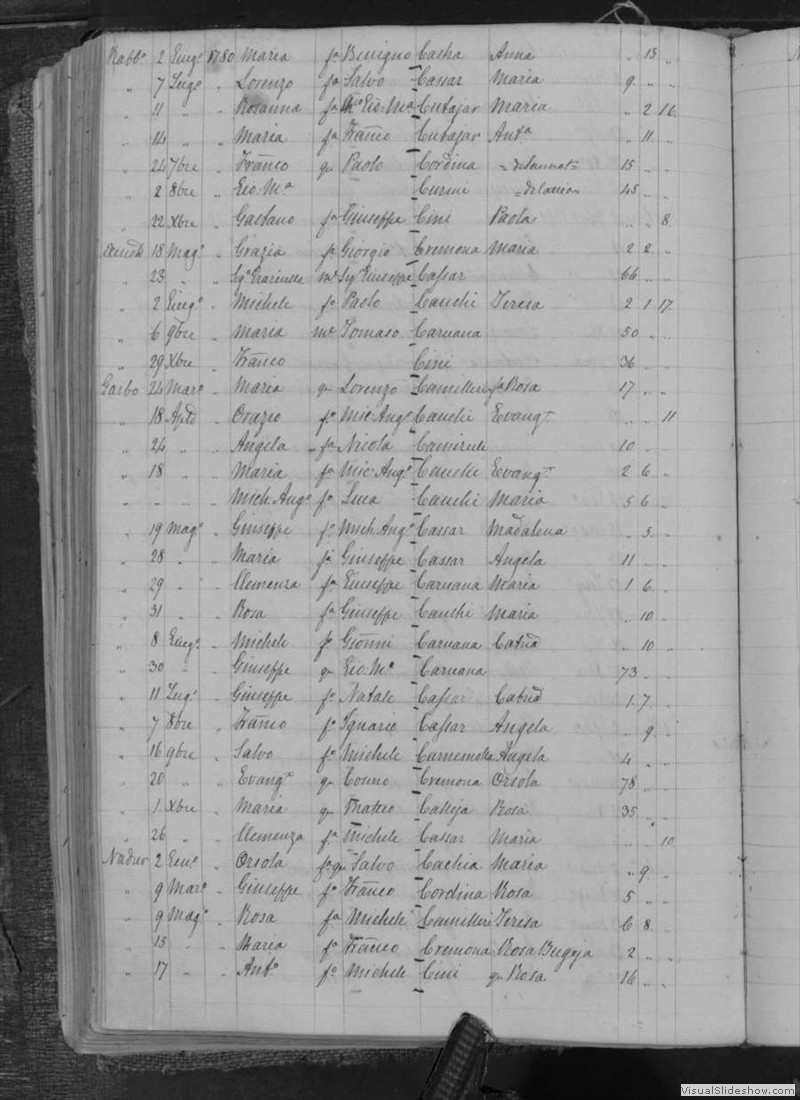 Rabbo 2 Giug.o 1780 Maria fa Benigno Cacha Anna " 13 "
" 7 Lug.o " Lorenzo fo Salvo Cassar Maria 9 " "
" 11 " " Rosanna fa Gio. Ma Cutajar Maria " 2 16
" 14 " " Maria fa Franco Cutajar Anta " 11 "
" 24 7bre " Franco qm Paolo Cordina 15 " "
" 2 8bre " Gio. Ma Curmi 45 " "
" 22 Xbre " Gaetano fo Giuseppe Cini Paola " " 8
18 Mago " Grazia fa Giorgio Cremona Maria 2 2 "
" 23 " " Giuseppe Cassar 66 " "
" 2 Giugo " Michele fo Paolo Cauchi Teresa 2 1 17
" 6 9bre " Maria me Tomaso Caruana 50 " "
" 29 Xbre " Franco Cini 36 " "
Garbo 24 Maro " Maria qm Lorenzo Camilleri fa Rosa 17 " "
" 18 Aple " Orazio fo Mic: Ango Cauchi Evangta " " 11
" 24 " " Angela fa Nicola 10 " "
" 18 " " Maria fa Mic: Ango Cauchi Evangta 2 6 "
" " " " Mich: Ango fo Luca Cauchi Maria 5 6 "
" 19 Mago " Giuseppe fo Mich: Ango Cassar Madalena " 5 "
" 28 " " Maria fa Giuseppe Cassar Angela 11 " "
" 29 " " Clemenza fa Giuseppe Caruana Maria 1 6 "
" 31 " " Rosa fa Giuseppe Cauchi Maria " 10 "
" 8 Giugo " Michele fo Gionni Caruana Catna " 10 "
" 30 " " Giuseppe qm Gio. Ma Caruana 73 " "
" 11 Lugo " Giuseppe fo Natale Cassar Catna 1 7 "
" 7 8bre " Franco fo Ignazio Cassar Angela " 9 "
" 16 9bre " Salvo fo Michele Angela 4 " "
" 20 " " Evanga qm Cosmo Cremona Orsola 78 " "
" 1 Xbre " Maria qm Matteo Calleja Rosa 35 " "
" 26 " " Clemenza fa Michele Cassar Maria " " 10
Nadur 2 Geno " Orsola fa qm Salvo Cachia Maria " 9 "
" 9 Maro " Giuseppe fo Franco Cordina Rosa 5 " "
" 9 Mago " Rosa fa Michele Camilleri Teresa 6 8 "
" 15 " " Maria fa Franco Cremona Rosa Bugeja 2 " "
" 17 " " Anto fo Michele Cini qm Rosa 16 " "
VisualSlideshow.com